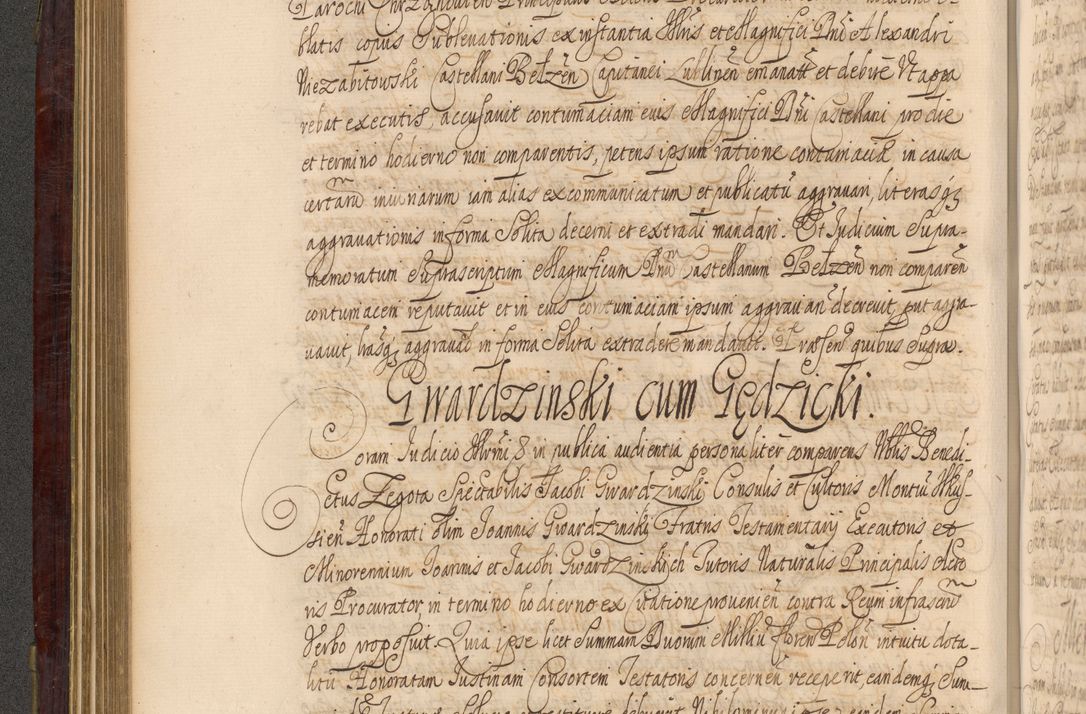 Parochi
blatis copiis Sublevationis ex instantia Illris et Magnifici Dni Alexandri
Niezabitowski Castellani Belzen Capitanei Lublinen emanatt et debite Ut appa
rebat executis, accusavit contumaciam eius Magnifici Dni Castellani pro die
et termino hodierno non comparentis, petens ipsum ratione contumaciæ in causa
certarum iniuriarum iam alias excommunicatum et publicatũ aggravari, literasq3
aggravationis in forma Solita decerni et extradi mandari. Et Judicium Supra-
memoratum Suprascriptum Magnificum Dnum Castellanum Belzen non comparen
contumacem reputavit et in eius contumaciam ipsum aggravan decrevit, put aggra-
vavit, lrasq3 aggravat in forma Solita extradere mandavit. Præsen quibus Supra.
Gwardzinski cum Gędzicki.
Coram Judicio Illrmi 8 in publica audientia personaliter comparens Nblis Benedi-
ctus Zegota Spectabilis Jacobi Gwardzinski Consulis et Cultoris Montiũ Ilkus-
sien Honorati olim Joannis Gwardzinski Fratris Testamentarij Executoris et
Minorennium Joannis et Jacobi Gwardzinskich Tutoris Naturalis Principalis Acto
ris Procurator in termino hodierno ex Citatione provenien contra Reum infrascrm
Verbo proposuit. Quia ipse licet Summam Duorum Milliũ floren Polon intuitu dota-
litij Honoratam Justinam Consortem Testatoris concernen receperit, eandemq3 Sum-